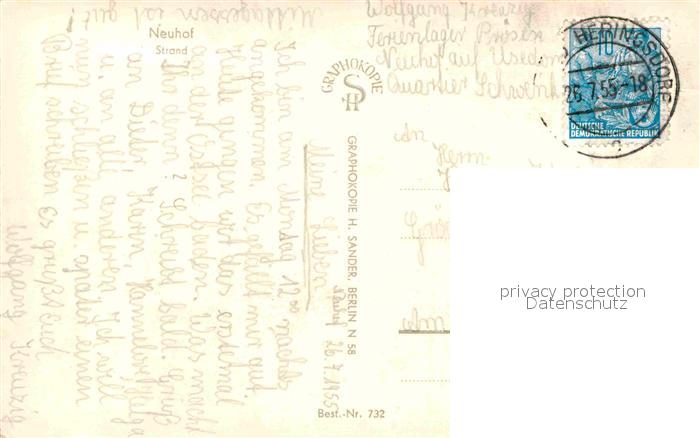 Neuhof
Strand
Mittagessen ist gut!
Neuhof 26.7.1955
Meine Lieben
Ich bin am Montag 12⁰⁰ nachts
angekommen. Es gefällt mir gut
Heute gingen wir das erstemal
an der Ostsee baden. Was macht
Ihr denn? Schreibt bald. Gruß
an Dieter, Karin, Hannelore, Helga
u. an alle anderen. Ich will
nun schlafen u. später einen
Brief schreiben Es grüßt Euch
Wolfgang Kreuzig
GRAPHOKOPIE
SH
GRAPHOKOPIE H. SANDER, BERLIN N 58
Best.-Nr. 732
Wolfgang Kreuzig
Ferienlager Prösen
Neuhof auf Usedom
Quartier
HERINGSDORF
26.7.55-18
10
DEUTSCHE
DEMOKRATISCHE REPUBLIK
An
Herrn
privacy protection
Datenschutz